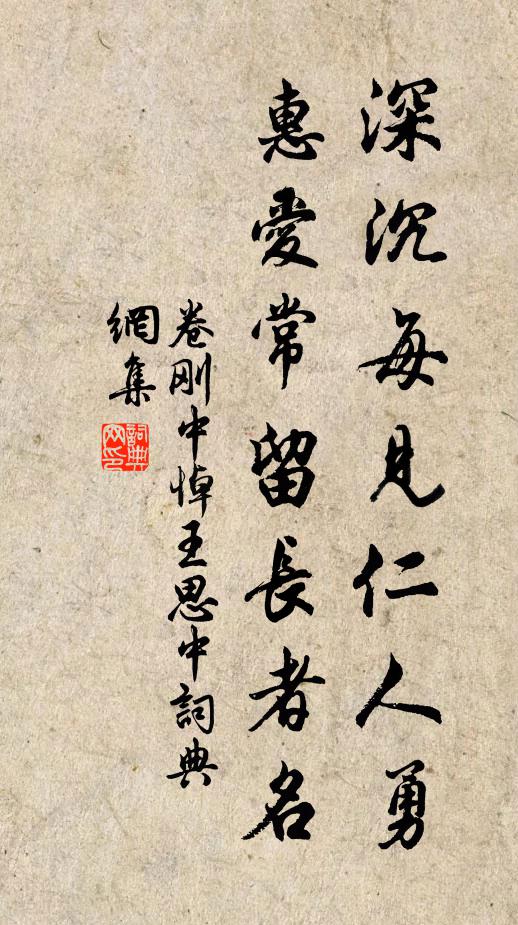 深沉每見仁人勇
惠愛常留長者名
卷刚中悼王思中詞典
網集
詞典
网印